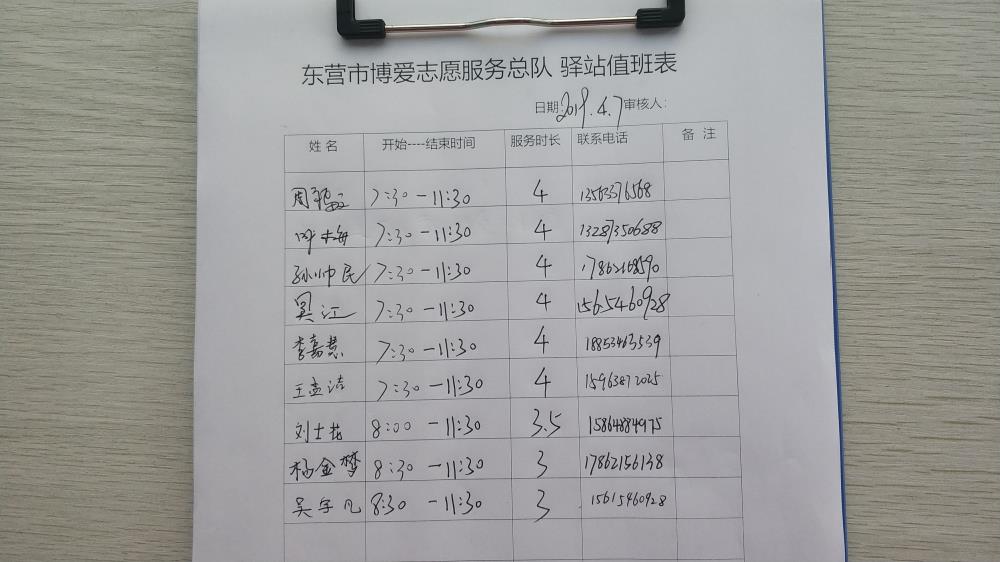 东营市博爱志愿服务总队 驿站值班表
日期:2019.4.7 审核人:
姓名 开始----结束时间 服务时长 联系电话 备 注
周 7:30-11:30 4 13563376568
叶梅 7:30-11:30 4 13287350688
孙帅民 7:30-11:30 4
吴江 7:30-11:30 4 1565460928
李嘉慧 7:30-11:30 4 18853463539
王孟洁 7:30-11:30 4 15963872025
刘士花 8:00-11:30 3.5 15864884975
杨金梦 8:30-11:30 3 17862156138
吴宇凡 8:30-11:30 3 15615460928